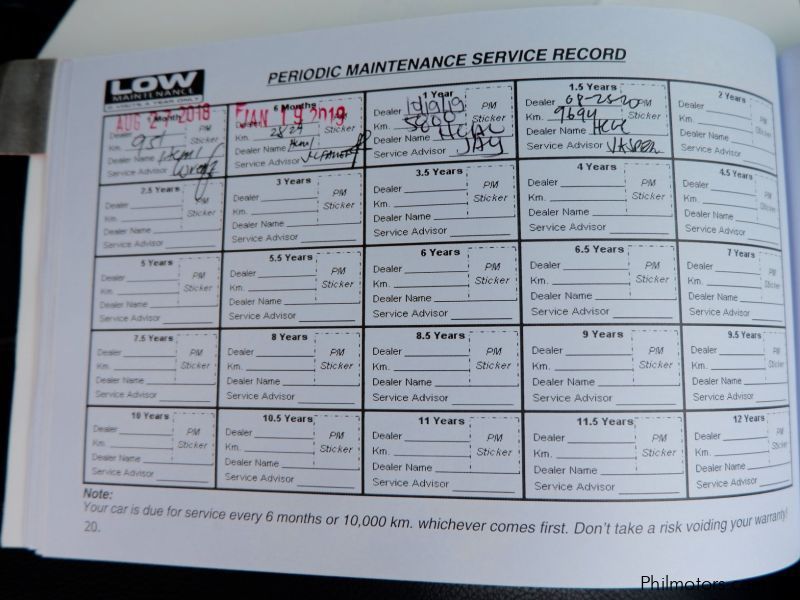 LOW
MAINTENANCE
2 VISITS A YEAR ONLY
PERIODIC MAINTENANCE SERVICE RECORD
1 Month
AUG 21 2018
Dealer PM
Km. 951 Sticker
Dealer Name
Service Advisor
6 Months
JAN 19 2019
Dealer PM
Km. 2824 Sticker
Dealer Name
Service Advisor
1 Year
Dealer 10/9/19 PM
Km. 5800 Sticker
Dealer Name
Service Advisor JAY
1.5 Years
Dealer 08-25-20 PM
Km. 9694 Sticker
Dealer Name
Service Advisor
2 Years
Dealer PM
Km. Sticker
Dealer Name
Service Advisor
2.5 Years
Dealer PM
Km. Sticker
Dealer Name
Service Advisor
3 Years
Dealer PM
Km. Sticker
Dealer Name
Service Advisor
3.5 Years
Dealer PM
Km. Sticker
Dealer Name
Service Advisor
4 Years
Dealer PM
Km. Sticker
Dealer Name
Service Advisor
4.5 Years
Dealer PM
Km. Sticker
Dealer Name
Service Advisor
5 Years
Dealer PM
Km. Sticker
Dealer Name
Service Advisor
5.5 Years
Dealer PM
Km. Sticker
Dealer Name
Service Advisor
6 Years
Dealer PM
Km. Sticker
Dealer Name
Service Advisor
6.5 Years
Dealer PM
Km. Sticker
Dealer Name
Service Advisor
7 Years
Dealer PM
Km. Sticker
Dealer Name
Service Advisor
7.5 Years
Dealer PM
Km. Sticker
Dealer Name
Service Advisor
8 Years
Dealer PM
Km. Sticker
Dealer Name
Service Advisor
8.5 Years
Dealer PM
Km. Sticker
Dealer Name
Service Advisor
9 Years
Dealer PM
Km. Sticker
Dealer Name
Service Advisor
9.5 Years
Dealer PM
Km. Sticker
Dealer Name
Service Advisor
10 Years
Dealer PM
Km. Sticker
Dealer Name
Service Advisor
10.5 Years
Dealer PM
Km. Sticker
Dealer Name
Service Advisor
11 Years
Dealer PM
Km. Sticker
Dealer Name
Service Advisor
11.5 Years
Dealer PM
Km. Sticker
Dealer Name
Service Advisor
12 Years
Dealer PM
Km. Sticker
Dealer Name
Service Advisor
Note:
Your car is due for service every 6 months or 10,000 km. whichever comes first. Don't take a risk voiding your warranty!
20.
Philmotors.com